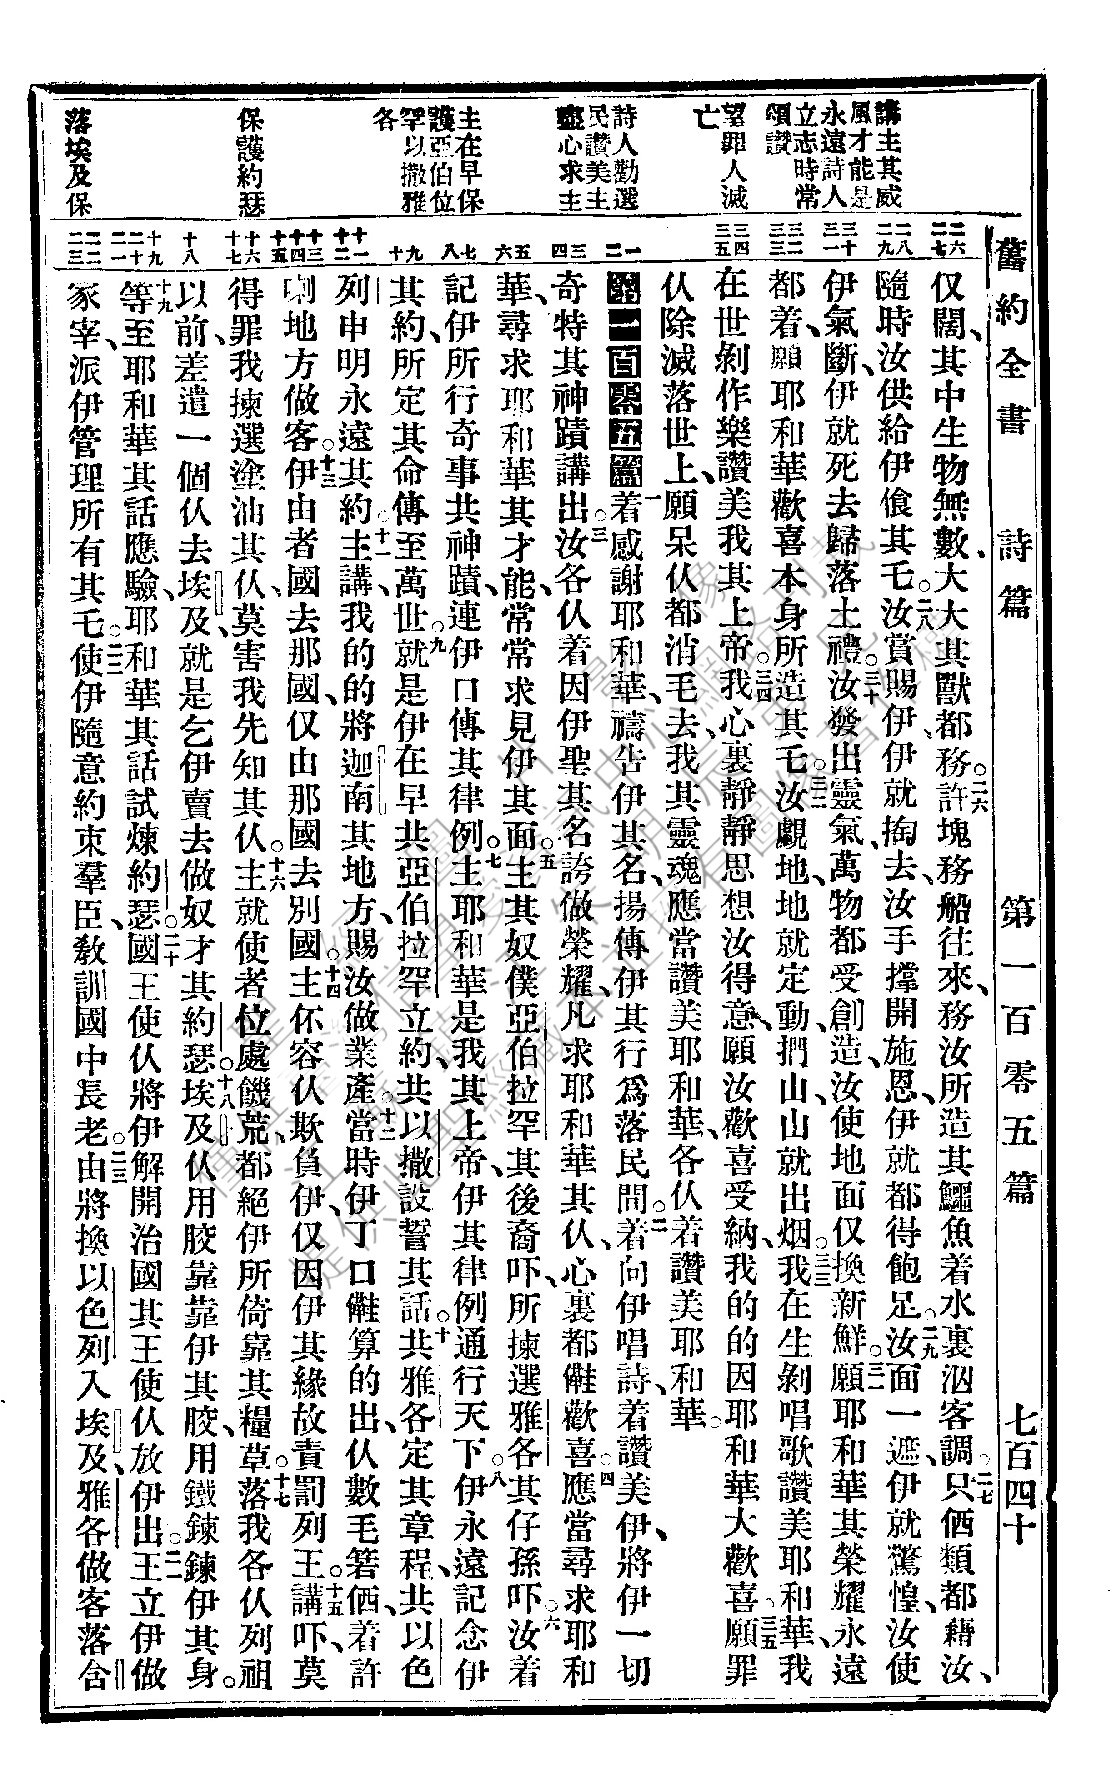 舊約全書　詩篇　第一百零五篇　七百四十
講主其威
風才能是
永遠詩人
立志時常
頌讚
望罪人滅
亡
詩人勸選
民讚美主
盡心求主
主在早保
護亞伯位
罕以撒雅
各
保護約瑟
落埃及保
二六 二七
二八 二九
三十 三一
三二 三三
三四 三五
一 二
三 四
五 六
七 八
九 十
十一 十二
十三 十四 十五
十六 十七
十八
十九 二十 二一
二二 二三
仅闊、其中生物無數、大大其獸都務許塊。二六務船往來、務汝所造其鱷魚着水裏泅客調。二七只伵類都藉汝、
隨時汝供給伊飡其乇。二八汝賞賜伊、伊就掏去、汝手擋開施恩、伊就都得飽足。二九汝面一遮、伊就驚惶、汝使
伊氣斷、伊就死去歸落土禮。三十汝發出靈氣、萬物都受創造、汝使地面仅換新鮮。三一願耶和華其榮耀永遠
都着、願耶和華歡喜本身所造其乇。三二汝覷地、地就定動、捫山、山就出烟。三三我在生剝唱歌讚美耶和華、我
在世剝作樂讚美我其上帝。三四我心裏靜靜思想汝得意、願汝歡喜受納、我的的因耶和華大歡喜。三五願罪
仈除滅落世上、願呆仈都消乇去、我其靈魂應當讚美耶和華、各仈着讚美耶和華。
第一百零五篇　一着感謝耶和華、禱告伊其名、揚傳伊其行爲落民間。二着向伊唱詩、着讚美伊、將伊一切
奇特其神蹟講出。三汝各仈着因伊聖其名誇做榮耀、凡求耶和華其仈、心裏都儺歡喜。四應當尋求耶和
華、尋求耶和華其才能、常常求見伊其面。五主其奴僕亞伯拉罕、其後裔吓、所揀選雅各其仔孫吓、六汝着
記伊所行奇事共神蹟、連伊口傳其律例。七主耶和華是我其上帝、伊其律例通行天下。八伊永遠記念伊
其約、所定其命傳至萬世。九就是伊在早共亞伯拉罕立約、共以撒設誓其話、十共雅各定其章程、共以色
列申明永遠其約。十一主講、我的的將迦南其地方、賜汝做業產。十二當時伊丁口儺算的出、仈數乇箬伵、着許
喇地方做客。十三伊由者國去那國、仅由那國去別國。十四主伓容仈欺負伊、仅因伊其緣故責罰列王。十五講吓、莫
得罪我揀選塗油其仈、莫害我先知其仈。十六主就使者位處饑荒、都絕伊所倚靠其糧草。十七落我各仈列祖
以前、差遣一個仈去埃及、就是乞伊賣去做奴才其約瑟。十八埃及仈用胶靠靠伊其胶、用鐵鍊鍊伊其身。
十九等至耶和華其話應驗、耶和華其話試煉約瑟。二十國王使仈將伊解開、治國其王使仈放伊出。二一王立伊做
冢宰、派伊管理所有其乇。二二使伊隨意約束羣臣、教訓國中長老。二三由將換以色列入埃及、雅各做客落含